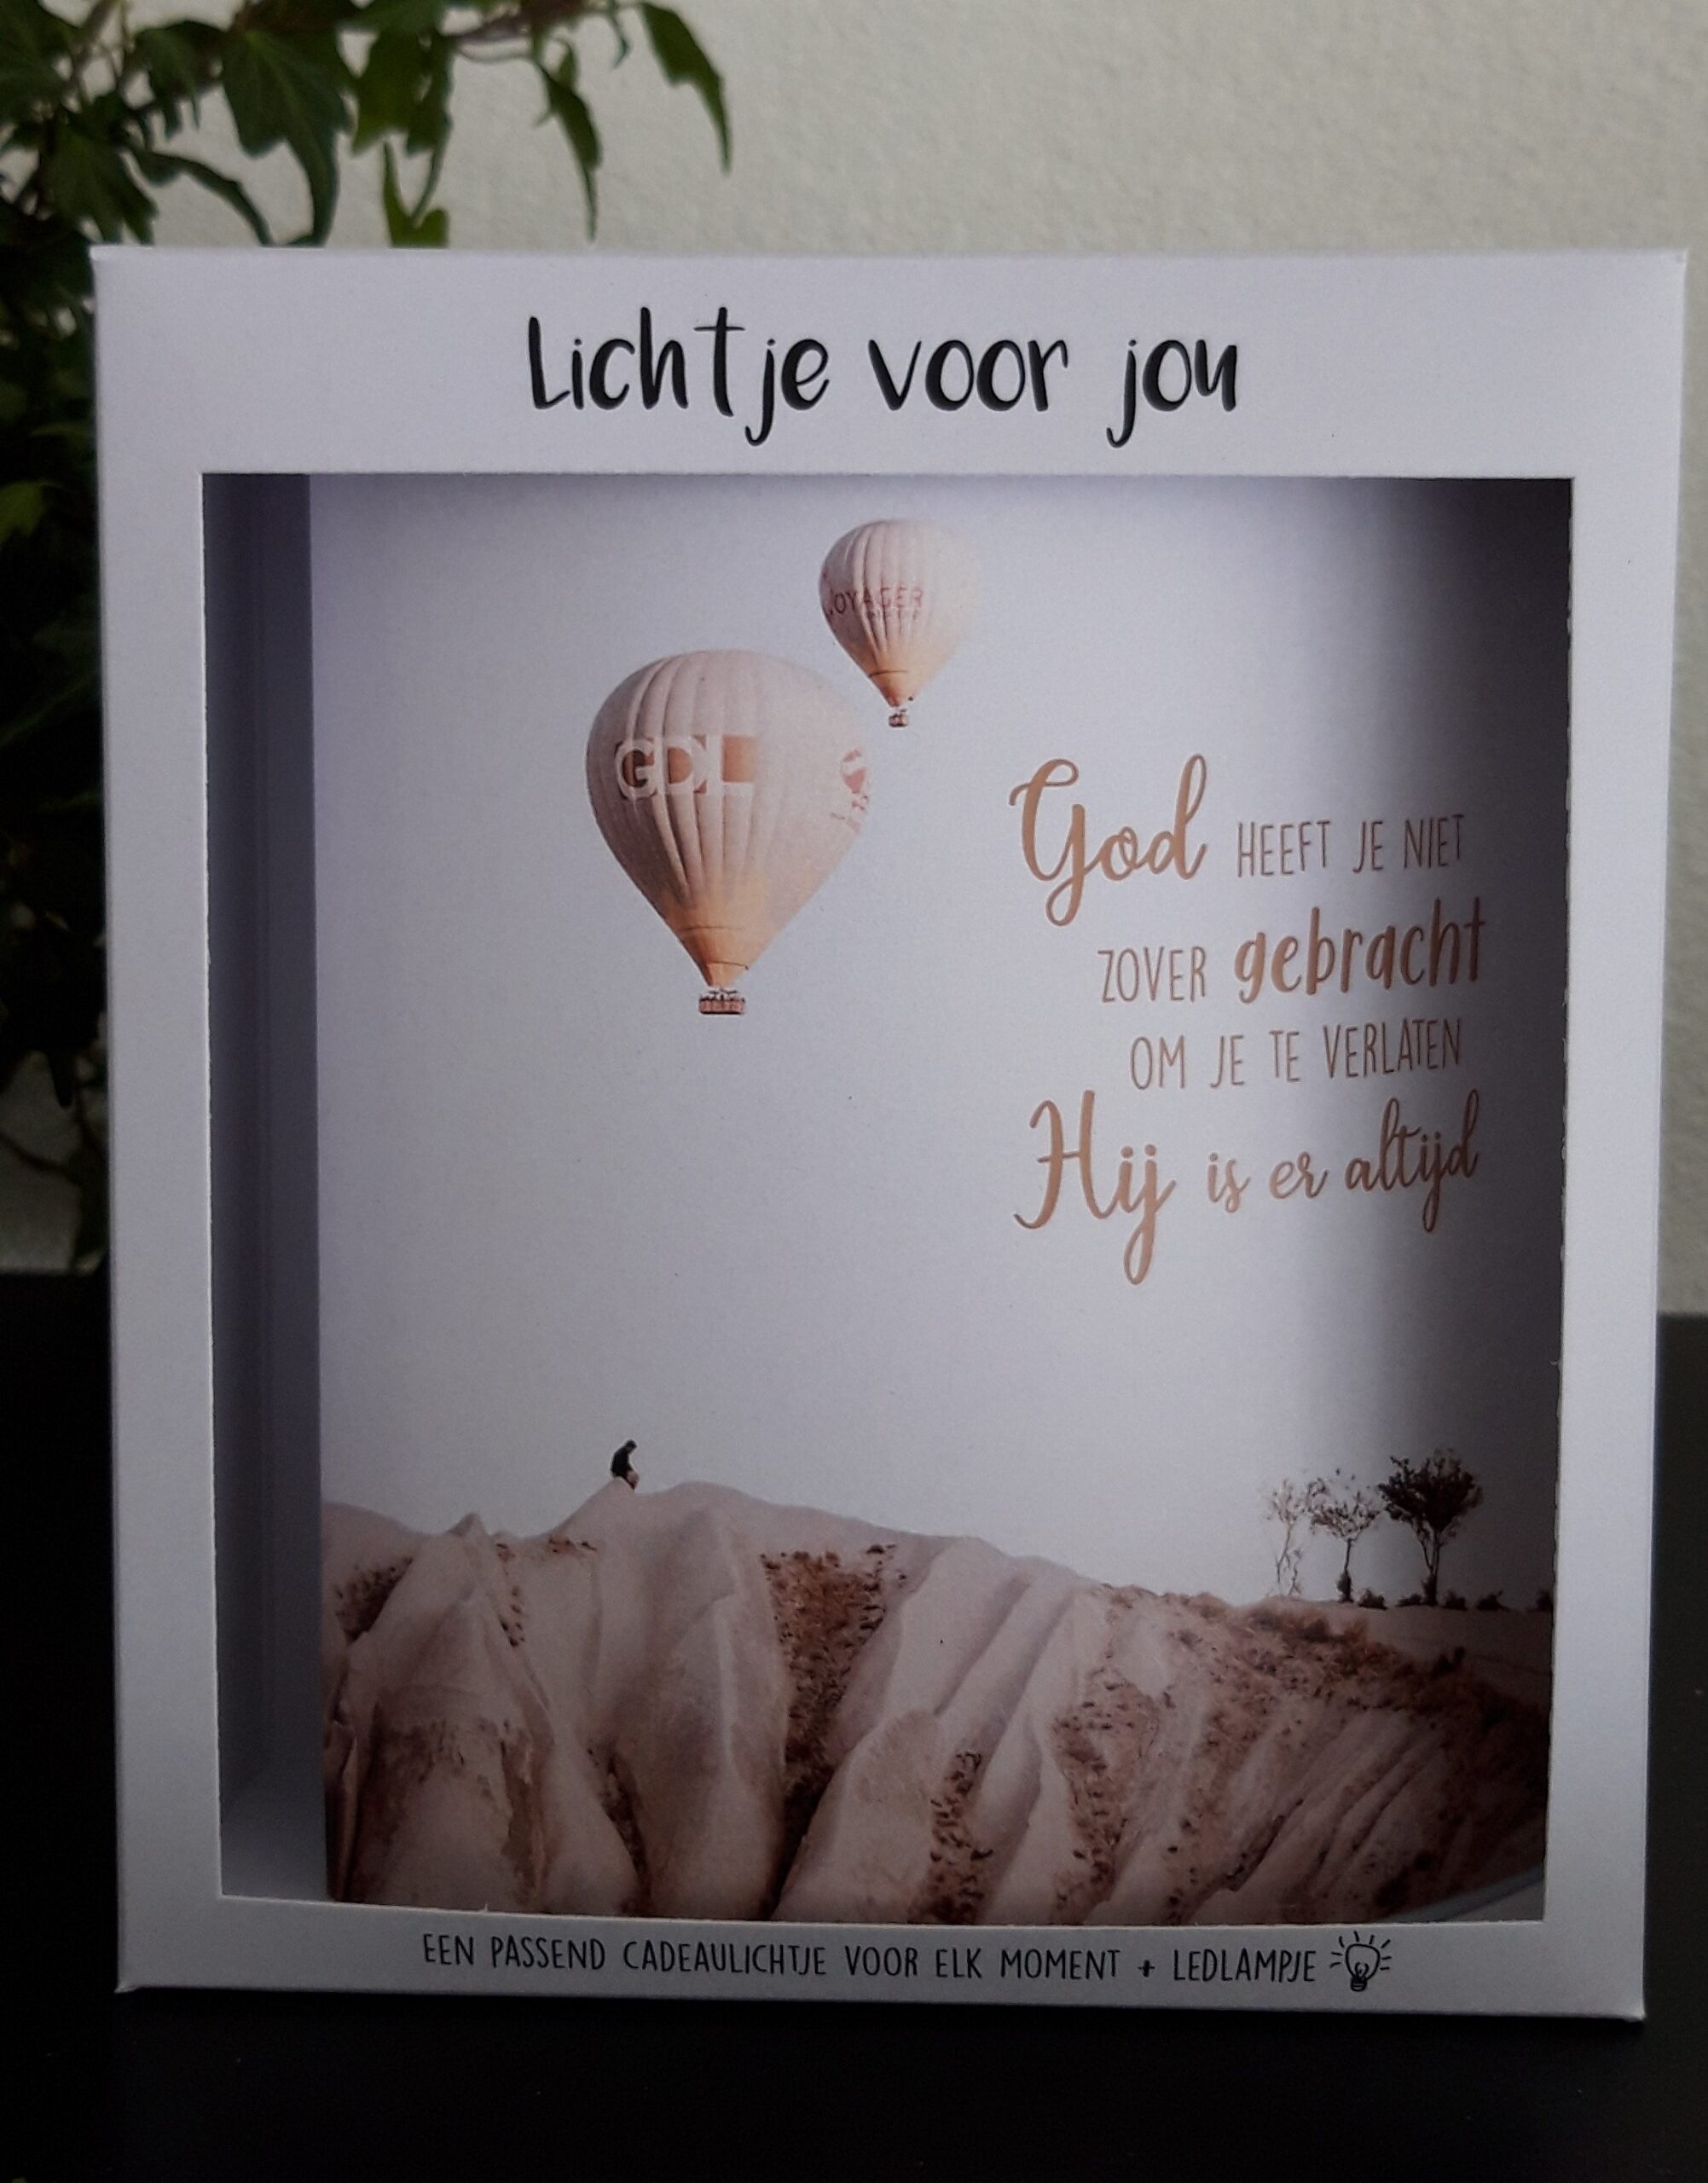 Lichtje voor jou
VOYAGER
GDL
God HEEFT JE NIET
ZOVER gebracht
OM JE TE VERLATEN
Hij is er altijd
EEN PASSEND CADEAULICHTJE VOOR ELK MOMENT + LEDLAMPJE